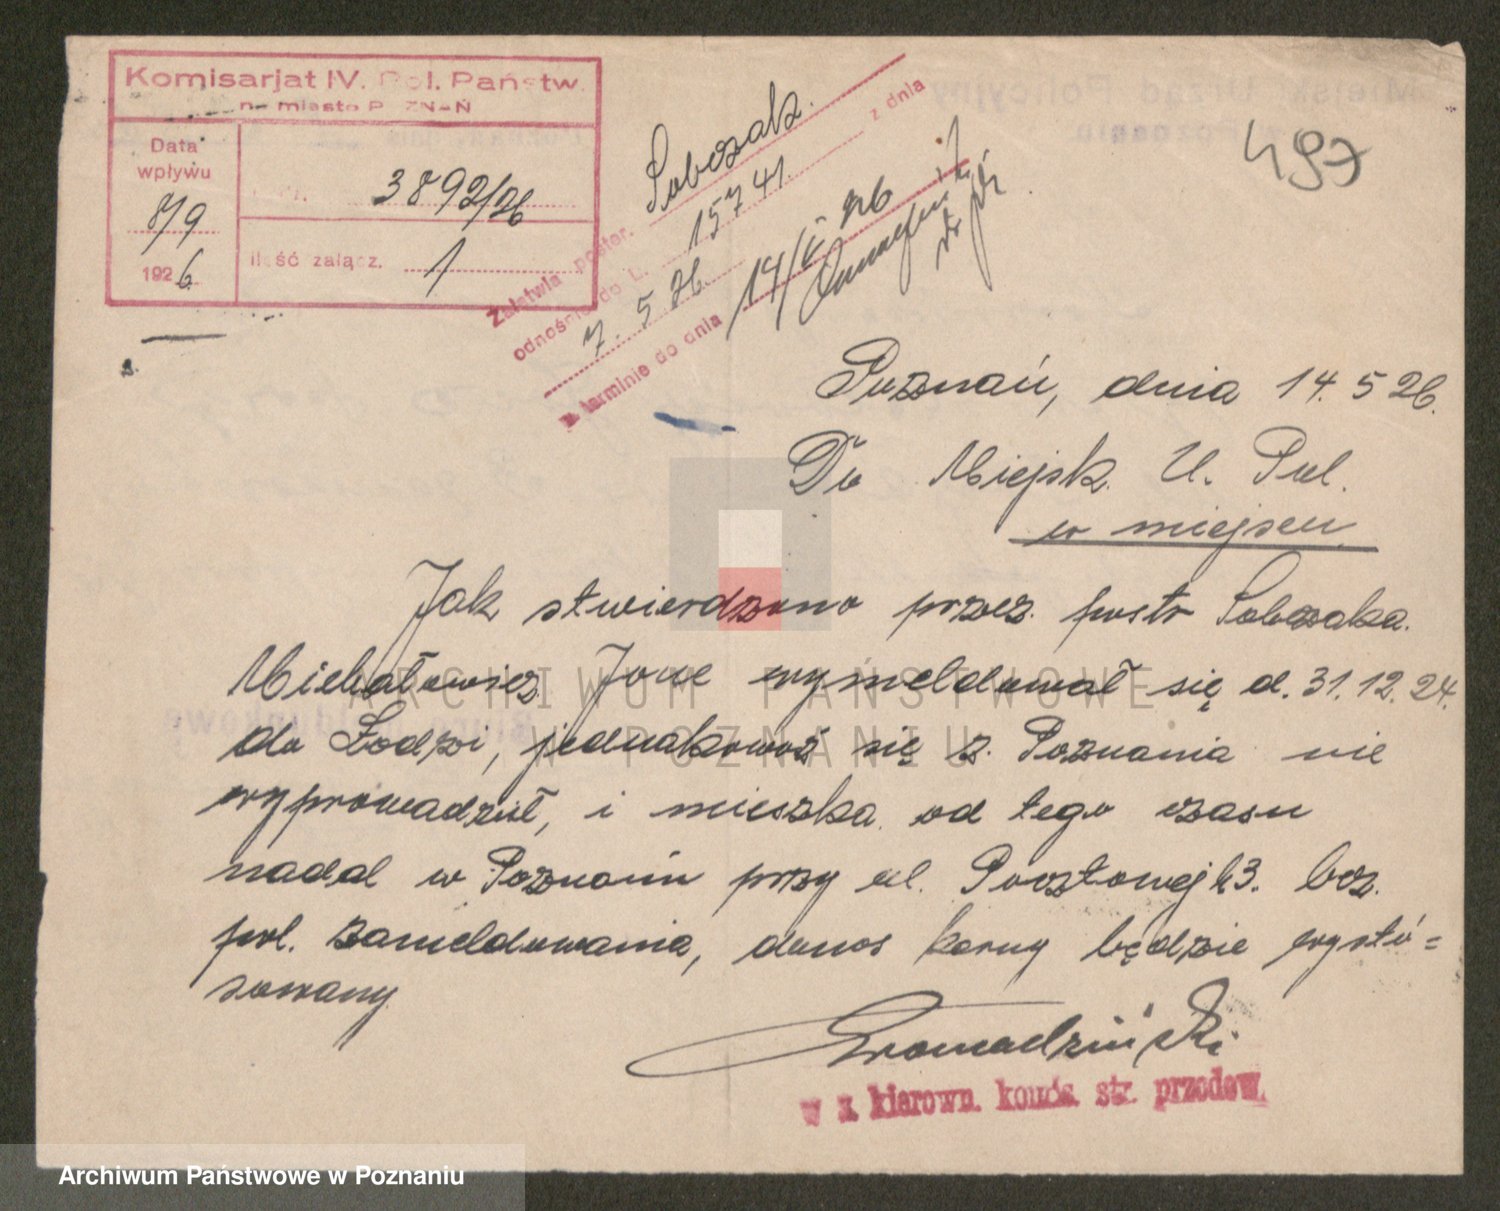 Komisarjat IV. Pol. Państw.
na miasto POZNAŃ
Data
wpływu
8/9
1926.
3892/26
ilość załącz. 1
Załatwia poster. Sobczak.
odnośnie do L. 15741. z dnia
7. 5 26.
w terminie do dnia 14/5 26
497
Poznań, dnia 14. 5 26.
Do Miejsk. U. Pol.
w miejscu.
Jak stwierdzono przez. postr Sobczaka.
Michałowicz Jowe wymeldował się d. 31. 12. 24.
do Łodzi, jednakowoż się z. Poznania nie
wyprowadził, i mieszka. od tego czasu
nadal w Poznaniu przy ul. Pocztowej 23. bez.
pol. zameldowania, donos karny będzie wysto=
sowany.
Gromadziński
w z. kierown. komis. st. przodow.
ARCHIWUM PAŃSTWOWE
W POZNANIU
Archiwum Państwowe w Poznaniu